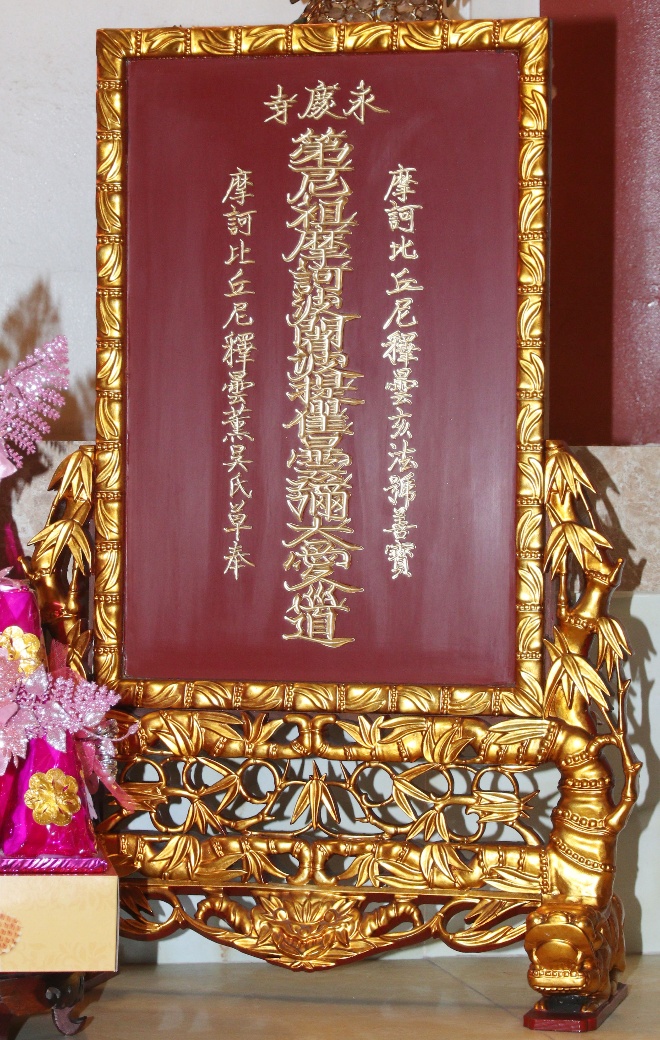 永慶寺
摩訶比丘尼釋曇亥法號善寶
第尼祖摩訶波闍波提憍曇彌大愛道
摩訶比丘尼釋雲薰吳氏草奉